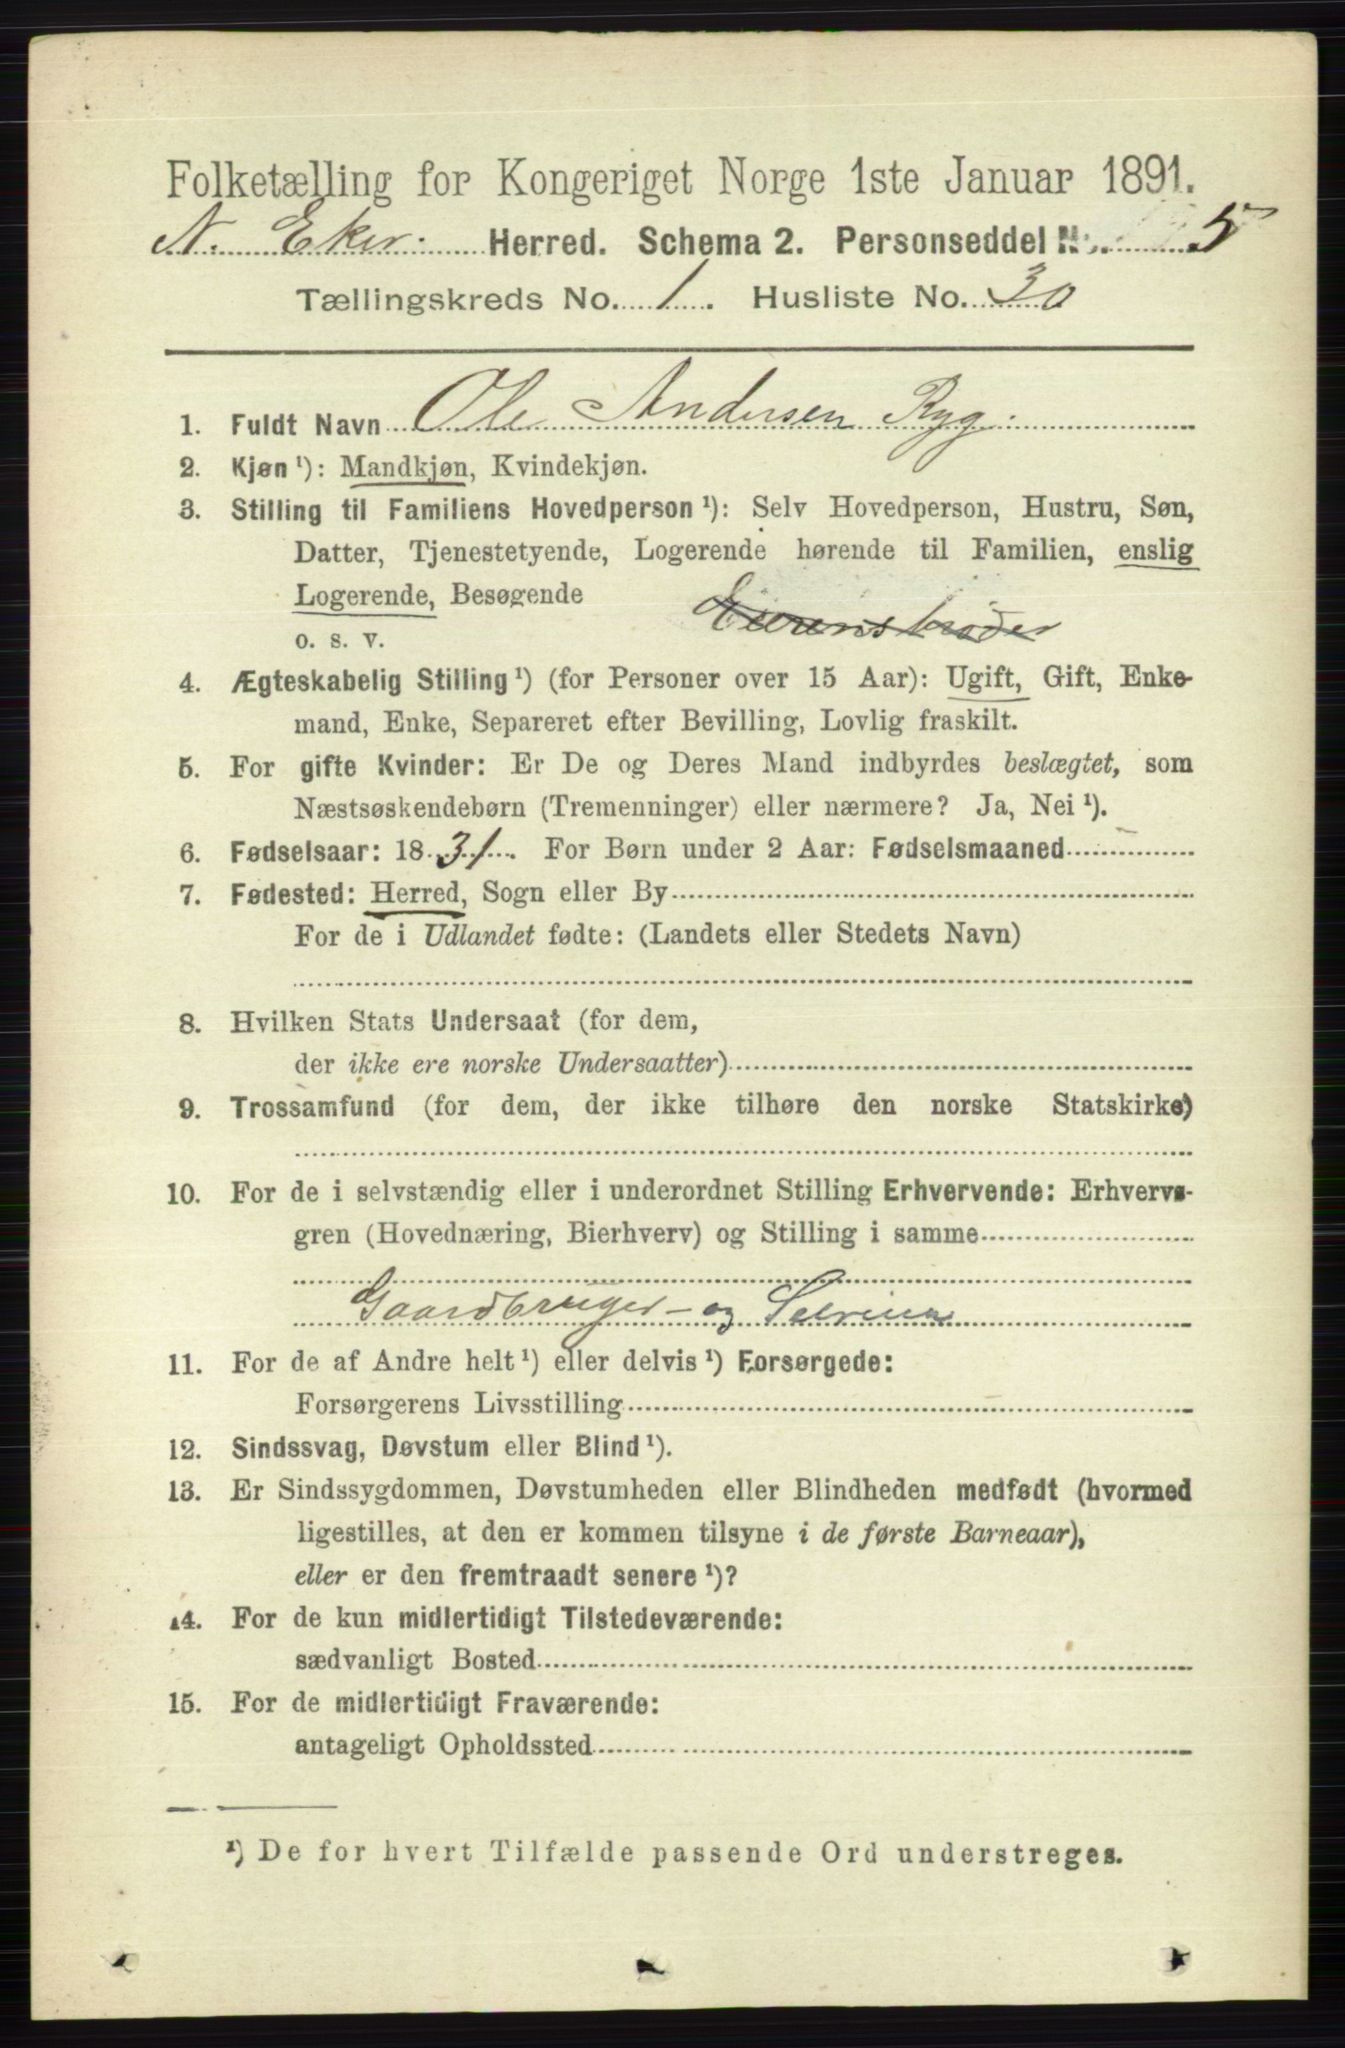 Folketælling for Kongeriget Norge 1ste Januar 1891.
N. Eker. Herred. Schema 2. Personseddel No. 5
Tællingskreds No. 1. Husliste No. 30
1. Fuldt Navn Ole Andersen Ryg.
2. Kjøn ¹): Mandkjøn, Kvindekjøn.
3. Stilling til Familiens Hovedperson ¹): Selv Hovedperson, Hustru, Søn,
Datter, Tjenestetyende, Logerende hørende til Familien, enslig
Logerende, Besøgende
Eierens broder
o. s. v.
4. Ægteskabelig Stilling ¹) (for Personer over 15 Aar): Ugift, Gift, Enke-
mand, Enke, Separeret efter Bevilling, Lovlig fraskilt.
5. For gifte Kvinder: Er De og Deres Mand indbyrdes beslægtet, som
Næstsøskendebørn (Tremenninger) eller nærmere? Ja, Nei ¹).
6. Fødselsaar: 1831. For Børn under 2 Aar: Fødselsmaaned
7. Fødested: Herred, Sogn eller By
For de i Udlandet fødte: (Landets eller Stedets Navn)
8. Hvilken Stats Undersaat (for dem,
der ikke ere norske Undersaatter)
9. Trossamfund (for dem, der ikke tilhøre den norske Statskirke)
10. For de i selvstændig eller i underordnet Stilling Erhvervende: Erhvervs-
gren (Hovednæring, Bierhverv) og Stilling i samme
Gaardbruger - og Selveier
11. For de af Andre helt ¹) eller delvis ¹) Forsørgede:
Forsørgerens Livsstilling
12. Sindssvag, Døvstum eller Blind ¹).
13. Er Sindssygdommen, Døvstumheden eller Blindheden medfødt (hvormed
ligestilles, at den er kommen tilsyne i de første Barneaar),
eller er den fremtraadt senere ¹)?
14. For de kun midlertidigt Tilstedeværende:
sædvanligt Bosted
15. For de midlertidigt Fraværende:
antageligt Opholdssted
¹) De for hvert Tilfælde passende Ord understreges.